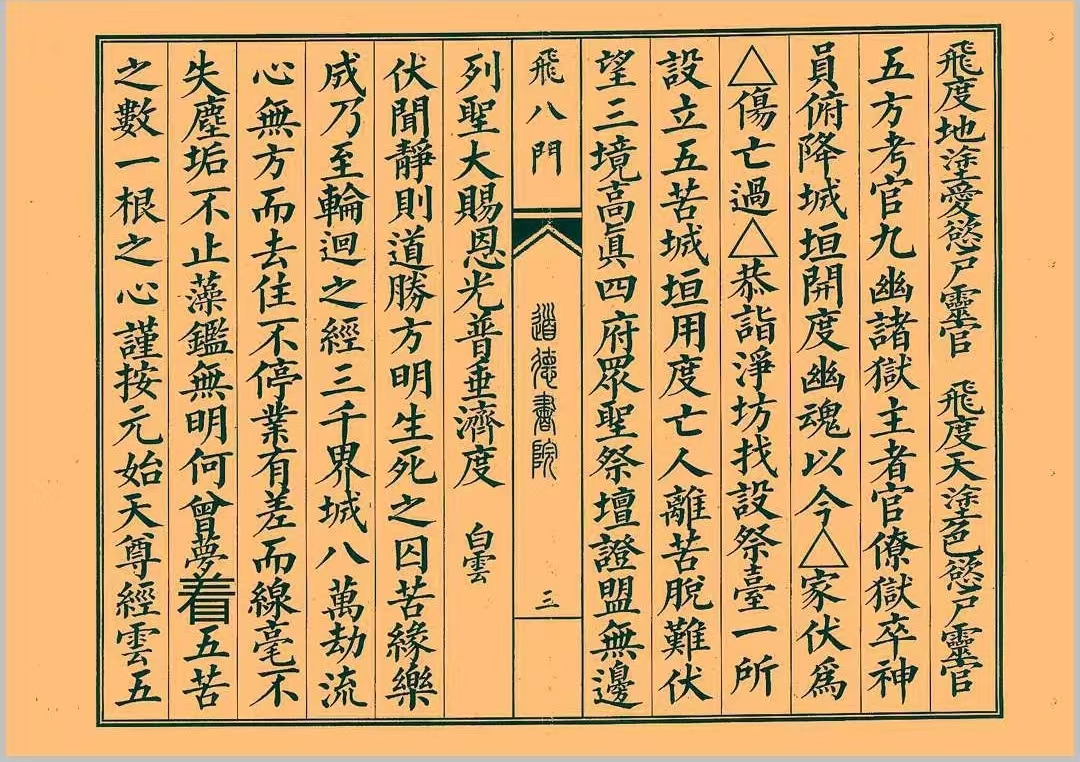 飛度地塗愛慾尸靈官　飛度天塗色慾尸靈官
五方考官九幽諸獄主者官僚獄卒神
員俯降城垣開度幽魂以今△家伏爲
△傷亡過△恭詣淨坊找設祭臺一所
設立五苦城垣用度亡人離苦脫難伏
望三境高眞四府眾聖祭壇證盟無邊
飛八門　道德書院　三
列聖大賜恩光普垂濟度　白雲
伏聞靜則道勝方明生死之因苦緣樂
成乃至輪迴之經三千界城八萬劫流
心無方而去住不停業有差而線毫不
失塵垢不止藻鑑無明何曾夢着五苦
之數一根之心謹按元始天尊經雲五